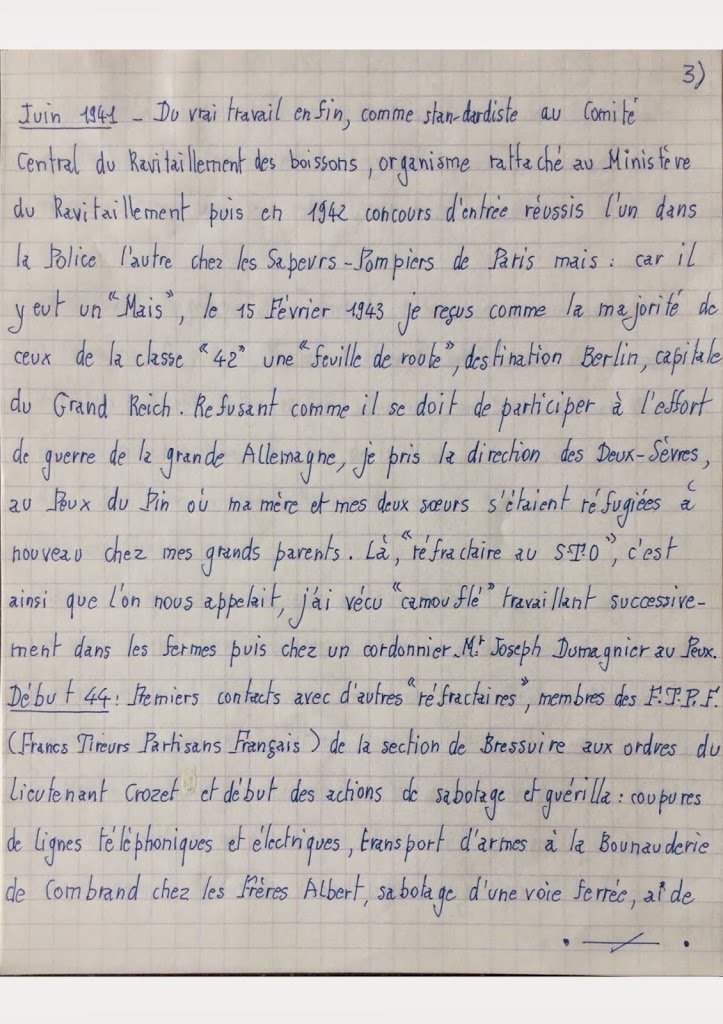 3)
Juin 1941 - Du vrai travail enfin, comme stan-dardiste au Comité
Central du Ravitaillement des boissons, organisme rattaché au Ministère
du Ravitaillement puis en 1942 concours d'entrée réussis l'un dans
la Police l'autre chez les Sapeurs-Pompiers de Paris mais : car il
y eut un "Mais", le 15 Février 1943 je reçus comme la majorité de
ceux de la classe "42" une "feuille de route", destination Berlin, capitale
du Grand Reich. Refusant comme il se doit de participer à l'effort
de guerre de la grande Allemagne, je pris la direction des Deux-Sèvres,
au Peux du Pin où ma mère et mes deux sœurs s'étaient réfugiées à
nouveau chez mes grands parents. Là, "réfractaire au S.T.O", c'est
ainsi que l'on nous appelait, j'ai vécu "camouflé" travaillant successive-
ment dans les fermes puis chez un cordonnier Mr Joseph Dumagnier au Peux.
Début 44 : Premiers contacts avec d'autres "réfractaires", membres des F.T.P.F.
(Francs Tireurs Partisans Français) de la section de Bressuire aux ordres du
Lieutenant Crozet et début des actions de sabotage et guérilla : coupures
de lignes téléphoniques et électriques, transport d'armes à la Bounauderie
de Combrand chez les Frères Albert, sabotage d'une voie ferrée, aide